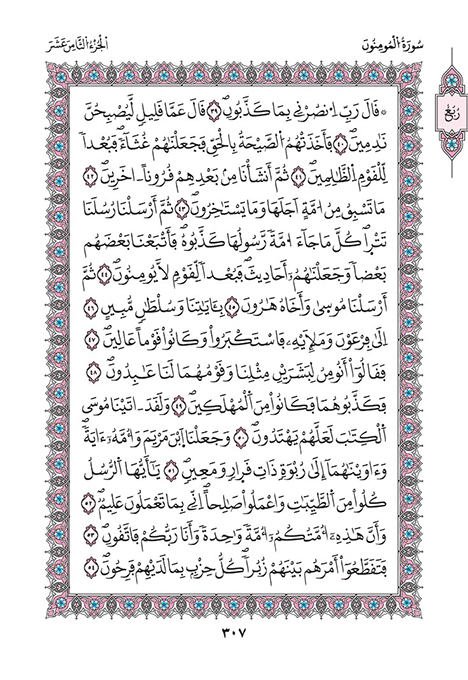 سُورَةُ اُ۬لْمُومِنُونَ
اَ۬لْجُزْءُ اُ۬لثَّامِنَ عَشَرَ
رُبُعٌ
* قَالَ رَبِّ اِ۟نصُرْنِے بِمَا كَذَّبُونِۖ ٣٩ قَالَ عَمَّا قَلِيلٖ لَّيُصْبِحُنَّ
نَٰدِمِينَۖ ٤٠ فَأَخَذَتْهُمُ اُ۬لصَّيْحَةُ بِالْحَقِّ فَجَعَلْنَٰهُمْ غُثَآءٗۖ فَبُعْداٗ
لِّلْقَوْمِ اِ۬لظَّٰلِمِينَۖ ٤١ ثُمَّ أَنشَأْنَا مِنۢ بَعْدِهِمْ قُرُوناً اٰخَرِينَۖ ٤٢
مَا تَسْبِقُ مِنُ ا۟مَّةٍ اَجَلَهَا وَمَا يَسْتَٰخِرُونَۖ ٤٣ ثُمَّ أَرْسَلْنَا رُسُلَنَا
تَتْر۪اۖ كُلَّ مَا جَآءَ ا۟مَّةٗ رَّسُولُهَا كَذَّبُوهُۖ فَأَتْبَعْنَا بَعْضَهُم
بَعْضاٗ وَجَعَلْنَٰهُمُۥٓ أَحَادِيثَۖ فَبُعْداٗ لِّقَوْمٖ لَّا يُومِنُونَۖ ٤٤ ثُمَّ
أَرْسَلْنَا مُوس۪يٰ وَأَخَاهُ هَٰرُونَ ٤٥ بِـَٔايَٰتِنَا وَسُلْطَٰنٖ مُّبِينٍ ٤٦
اِلَيٰ فِرْعَوْنَ وَمَلَإِيْهِۦ فَاسْتَكْبَرُواْ وَكَانُواْ قَوْماً عَالِينَۖ ٤٧
فَقَالُوٓاْ أَنُومِنُ لِبَشَرَيْنِ مِثْلِنَا وَقَوْمُهُمَا لَنَا عَٰبِدُونَۖ ٤٨
فَكَذَّبُوهُمَا فَكَانُواْ مِنَ اَ۬لْمُهْلَكِينَۖ ٤٩ وَلَقَدَ اٰتَيْنَا مُوسَي
اَ۬لْكِتَٰبَ لَعَلَّهُمْ يَهْتَدُونَۖ ٥٠ وَجَعَلْنَا اَ۪بْنَ مَرْيَمَ وَأُمَّهُۥٓ ءَايَةٗۖ
وَءَاوَيْنَٰهُمَآ إِلَيٰ رُبْوَةٖ ذَاتِ قَرَارٖ وَمَعِينٖۖ ٥١ يَٰٓأَيُّهَا اَ۬لرُّسُلُ
كُلُواْ مِنَ اَ۬لطَّيِّبَٰتِ وَاعْمَلُواْ صَٰلِحاًۖ اِنِّے بِمَا تَعْمَلُونَ عَلِيمٞۖ ٥٢
وَأَنَّ هَٰذِهِۦٓ أُمَّتُكُمُۥٓ أُمَّةٗ وَٰحِدَةٗ وَأَنَا رَبُّكُمْ فَاتَّقُونِۖ ٥٣
فَتَقَطَّعُوٓاْ أَمْرَهُم بَيْنَهُمْ زُبُراٗۖ كُلُّ حِزْبِۢ بِمَا لَدَيْهِمْ فَرِحُونَۖ ٥٤
٣٠٧